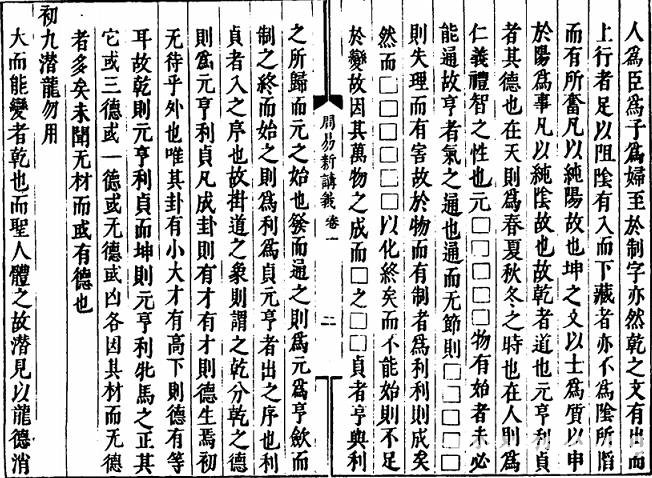 人爲臣爲子爲婦至於制字亦然乾之文有出而
上行者足以阻陰有入而下藏者亦不爲陰所䧟
而有所奮凡以純陽故也坤之文以土爲質以申
於陽爲事凡以純陰故也故乾者道也元亨利貞
者其德也在天則爲春夏秋冬之時也在人則爲
仁義禮智之性也元□□□□□物有始者未必
能通故亨者氣之通也通而无節則□□□□
則失理而有害故於物而有制者爲利利則成矣
然而□□□□□□以化終矣而不能始則不足
於變故因其萬物之成而□之□□貞者亨與利
周易新講義 卷一 二
之所歸而元之始也發而通之則爲元爲亨歛而
制之終而始之則爲利爲貞元亨者出之序也利
貞者入之序也故卦道之象則謂之乾分乾之德
則爲元亨利貞凡成卦則有才有才則德生焉初
无待乎外也唯其卦有小大才有高下則德有等
耳故乾則元亨利貞而坤則元亨利牝馬之正其
它或三德或一德或无德或凶各因其材而无德
者多矣未聞无材而或有德也
初九潜龍勿用
大而能變者乾也而聖人體之故潜見以龍德消